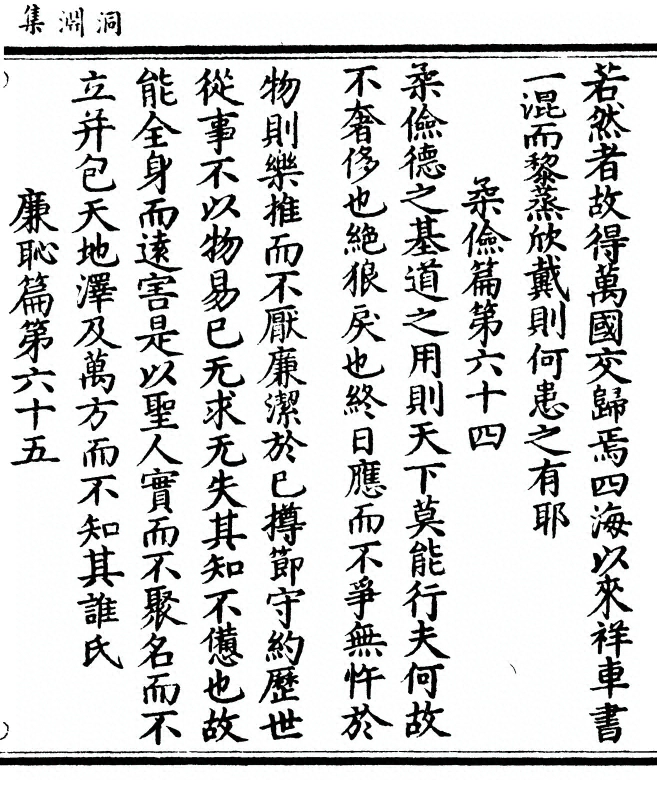 洞淵集
若然者故得萬國交歸焉四海以來祥車書
一混而黎蒸欣戴則何患之有耶
柔儉篇第六十四
柔儉德之基道之用則天下莫能行夫何故
不奢侈也絶狠戾也終日應而不爭無忤於
物則樂推而不厭廉潔於已撙節守約歷世
從事不以物易已无求无失其知不憊也故
能全身而遠害是以聖人實而不聚名而不
立并包天地澤及萬方而不知其誰氏
廉恥篇第六十五